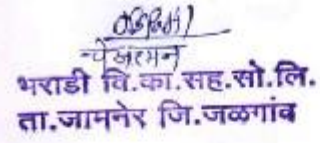 चेअरमन
भराडी वि.का.सह.सो.लि.
ता.जामनेर जि.जळगांव